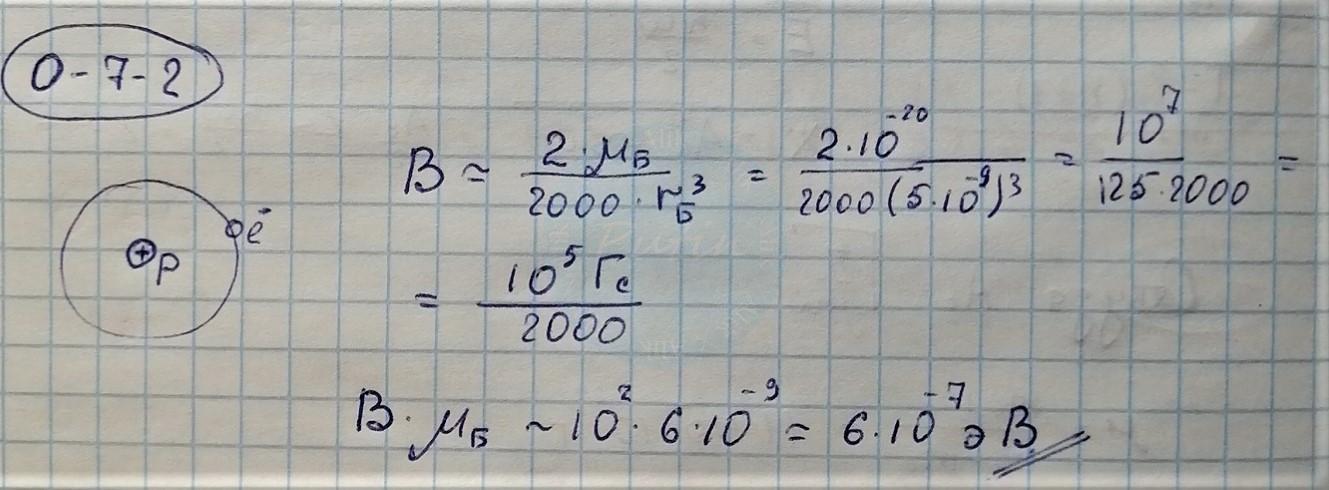 0-7-2
B ≈ 2·μ_Б / 2000·r_Б³ = 2·10⁻²⁰ / 2000(5·10⁻⁹)³ = 10⁷ / 125·2000 =
ē
p
= 10⁵ Гс / 2000
B·μ_Б ~ 10²·6·10⁻⁹ = 6·10⁻⁷ эВ